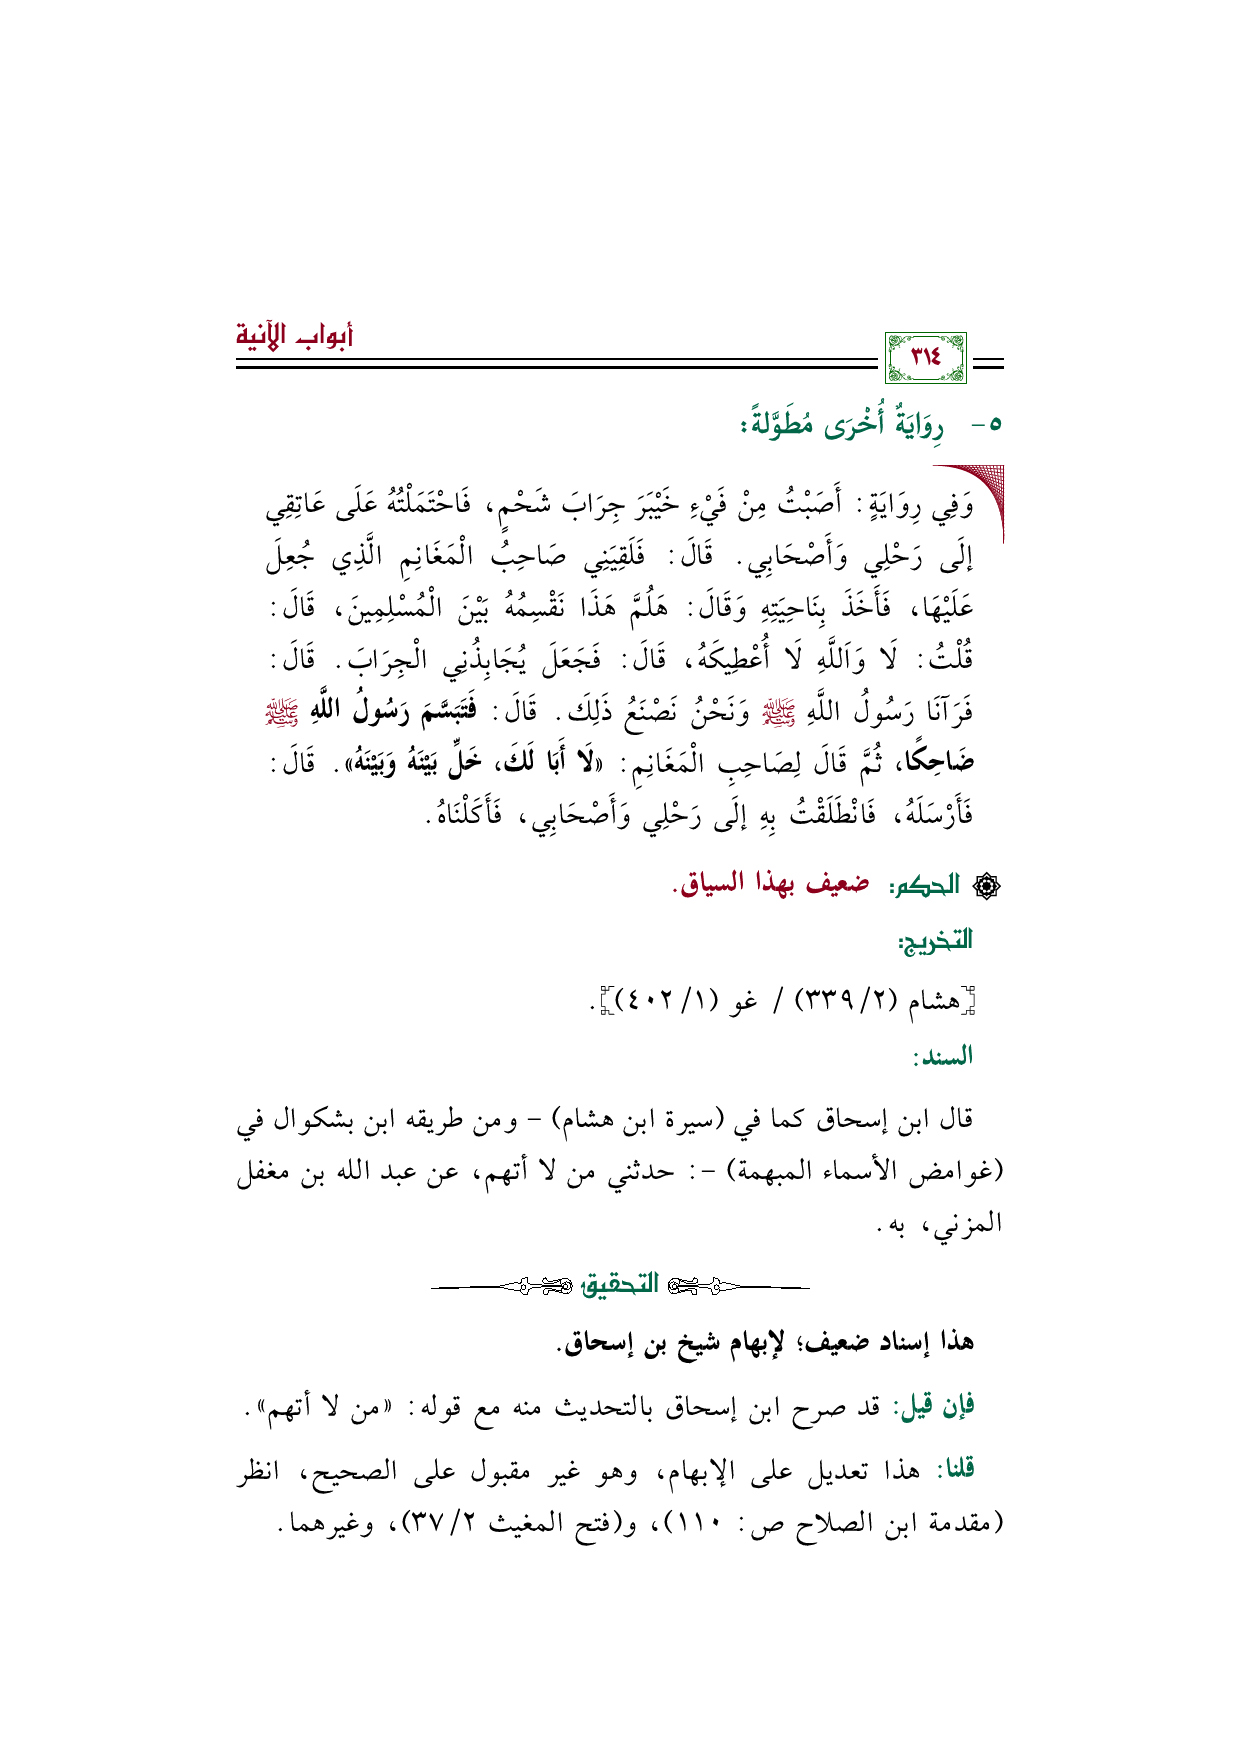 أبواب الآنية
٣١٤
٥- رِوَايَةٌ أُخْرَى مُطَوَّلةً:
وَفِي رِوَايَةٍ: أَصَبْتُ مِنْ فَيْءِ خَيْبَرَ جِرَابَ شَحْمٍ، فَاحْتَمَلْتُهُ عَلَى عَاتِقِي
إلَى رَحْلِي وَأَصْحَابِي. قَالَ: فَلَقِيَنِي صَاحِبُ الْمَغَانِمِ الَّذِي جُعِلَ
عَلَيْهَا، فَأَخَذَ بِنَاحِيَتِهِ وَقَالَ: هَلُمَّ هَذَا نَقْسِمُهُ بَيْنَ الْمُسْلِمِينَ، قَالَ:
قُلْتُ: لَا وَاَللَّهِ لَا أُعْطِيكَهُ، قَالَ: فَجَعَلَ يُجَابِذُنِي الْجِرَابَ. قَالَ:
فَرَآنَا رَسُولُ اللَّهِ ﷺ وَنَحْنُ نَصْنَعُ ذَلِكَ. قَالَ: فَتَبَسَّمَ رَسُولُ اللَّهِ ﷺ
ضَاحِكًا، ثُمَّ قَالَ لِصَاحِبِ الْمَغَانِمِ: «لَا أَبَا لَكَ، خَلِّ بَيْنَهُ وَبَيْنَهُ». قَالَ:
فَأَرْسَلَهُ، فَانْطَلَقْتُ بِهِ إلَى رَحْلِي وَأَصْحَابِي، فَأَكَلْنَاهُ.
الحكم: ضعيف بهذا السياق.
التخريج:
[هشام (٢/ ٣٣٩) / غو (١/ ٤٠٢)].
السند:
قال ابن إسحاق كما في (سيرة ابن هشام) – ومن طريقه ابن بشكوال في
(غوامض الأسماء المبهمة) –: حدثني من لا أتهم، عن عبد الله بن مغفل
المزني، به.
التحقيق
هذا إسناد ضعيف؛ لإبهام شيخ بن إسحاق.
فإن قيل: قد صرح ابن إسحاق بالتحديث منه مع قوله: «من لا أتهم».
قلنا: هذا تعديل على الإبهام، وهو غير مقبول على الصحيح، انظر
(مقدمة ابن الصلاح ص: ١١٠)، و(فتح المغيث ٢/ ٣٧)، وغيرهما.